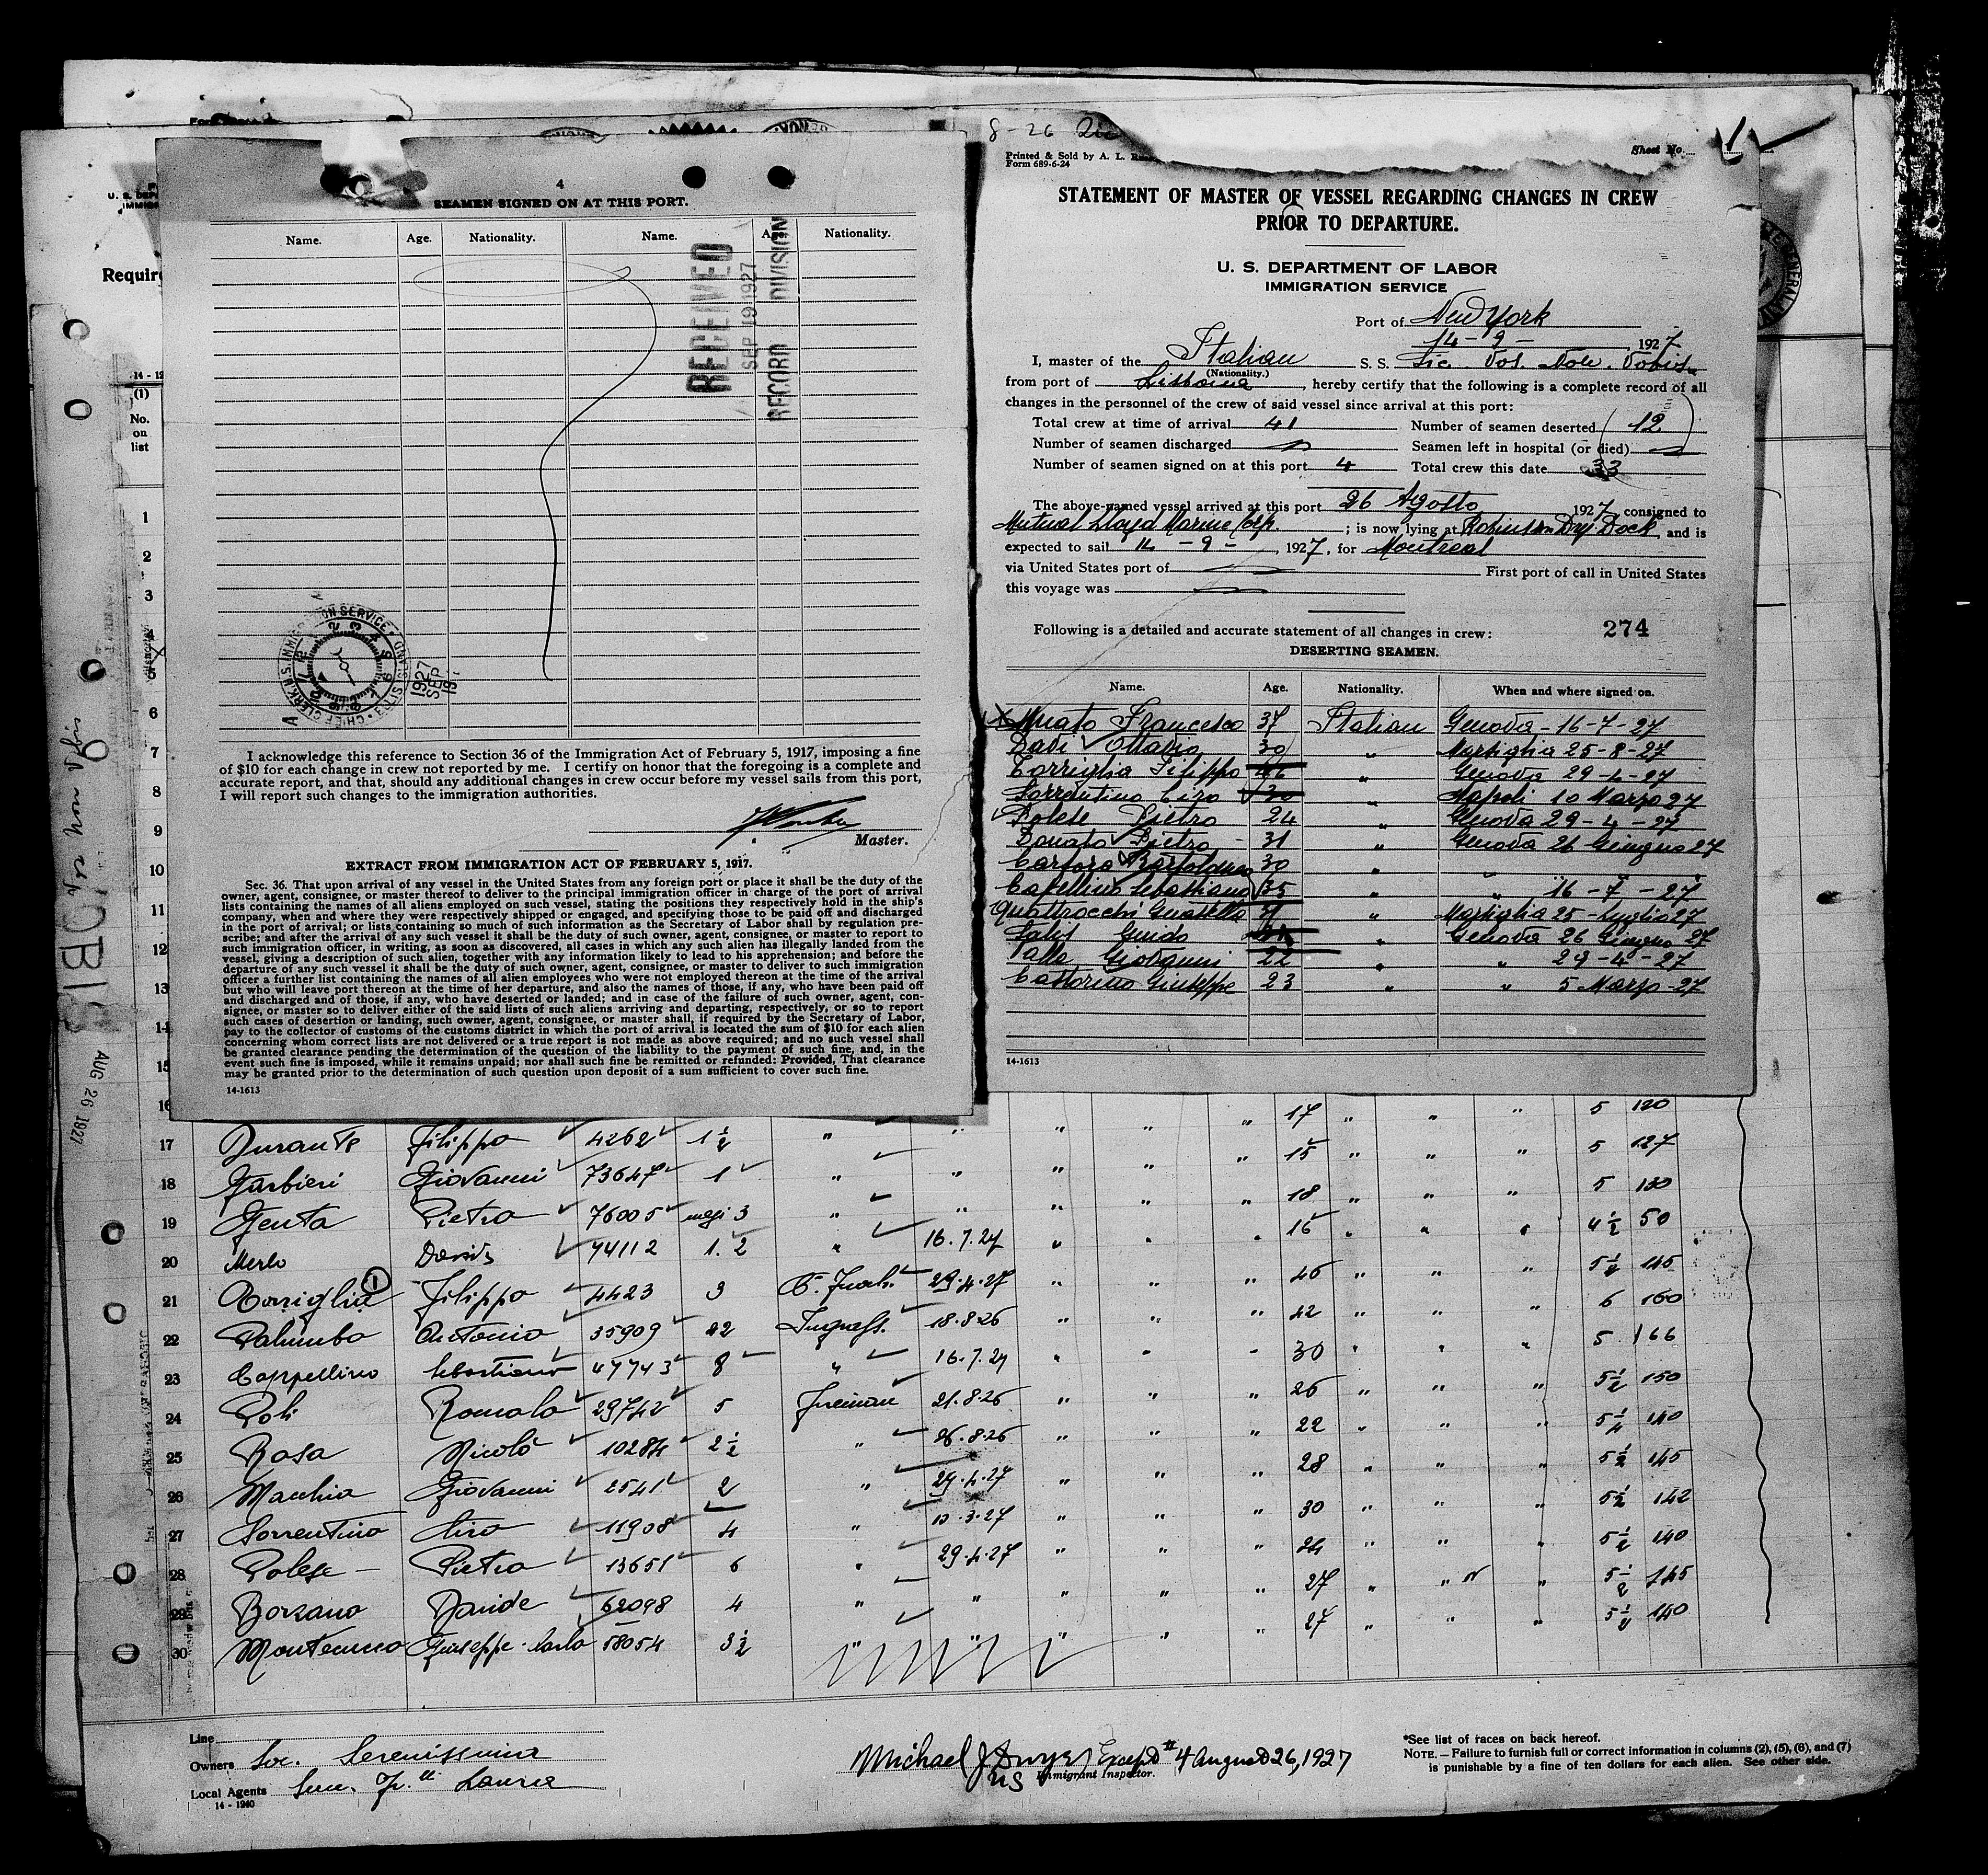 8-26
Printed & Sold by A. L.
Form 689-6-24
Sheet No.
4
SEAMEN SIGNED ON AT THIS PORT.
Name. Age. Nationality. Name. Age. Nationality.
RECEIVED
SEP 19 1927
RECORD DIVISION
I acknowledge this reference to Section 36 of the Immigration Act of February 5, 1917, imposing a fine
of $10 for each change in crew not reported by me. I certify on honor that the foregoing is a complete and
accurate report, and that, should any additional changes in crew occur before my vessel sails from this port,
I will report such changes to the immigration authorities.
Master.
EXTRACT FROM IMMIGRATION ACT OF FEBRUARY 5, 1917.
Sec. 36. That upon arrival of any vessel in the United States from any foreign port or place it shall be the duty of the
owner, agent, consignee, or master thereof to deliver to the principal immigration officer in charge of the port of arrival
lists containing the names of all aliens employed on such vessel, stating the positions they respectively hold in the ship's
company, when and where they were respectively shipped or engaged, and specifying those to be paid off and discharged
in the port of arrival; or lists containing so much of such information as the Secretary of Labor shall by regulation pre-
scribe; and after the arrival of any such vessel it shall be the duty of such owner, agent, consignee, or master to report to
such immigration officer, in writing, as soon as discovered, all cases in which any such alien has illegally landed from the
vessel, giving a description of such alien, together with any information likely to lead to his apprehension; and before the
departure of any such vessel it shall be the duty of such owner, agent, consignee, or master to deliver to such immigration
officer a further list containing the names of all alien employees who were not employed thereon at the time of the arrival
but who will leave port thereon at the time of her departure, and also the names of those, if any, who have been paid off
and discharged and of those, if any, who have deserted or landed; and in case of the failure of such owner, agent, con-
signee, or master so to deliver either of the said lists of such aliens arriving and departing, respectively, or so to report
such cases of desertion or landing, such owner, agent, consignee, or master shall, if required by the Secretary of Labor,
pay to the collector of customs of the customs district in which the port of arrival is located the sum of $10 for each alien
concerning whom correct lists are not delivered or a true report is not made as above required; and no such vessel shall
be granted clearance pending the determination of the question of the liability to the payment of such fine, and, in the
event such fine is imposed, while it remains unpaid; nor shall such fine be remitted or refunded: Provided, That clearance
may be granted prior to the determination of such question upon deposit of a sum sufficient to cover such fine.
14-1613
STATEMENT OF MASTER OF VESSEL REGARDING CHANGES IN CREW
PRIOR TO DEPARTURE.
U. S. DEPARTMENT OF LABOR
IMMIGRATION SERVICE
Port of New York
14-9-, 1927
I, master of the Italian S. S. Sic. Vos. Non. Vobis
(Nationality.)
from port of Lisbona, hereby certify that the following is a complete record of all
changes in the personnel of the crew of said vessel since arrival at this port:
Total crew at time of arrival 41 Number of seamen deserted (12)
Number of seamen discharged Seamen left in hospital (or died)
Number of seamen signed on at this port 4 Total crew this date 33
The above-named vessel arrived at this port 26 Agosto 1927, consigned to
Mutual Lloyd Marine Corp. ; is now lying at Robinson Dry Dock, and is
expected to sail 14-9-, 1927, for Montreal
via United States port of First port of call in United States
this voyage was
Following is a detailed and accurate statement of all changes in crew: 274
DESERTING SEAMEN.
Name. Age. Nationality. When and where signed on.
Francesco 37 Italian Genova - 16-7-27
Davi Ottavio 30 " Marsiglia 25-8-27
Torriglia Filippo 46 " Genova 29-4-27
Sorrentino Ciro 30 " Napoli 10 Marzo 27
Polese Pietro 24 " Genova 29-4-27
Donato Pietro - 31 " Genova 26 Giugno 27
Carfora Bartolomeo 30 " " "
Capellino Sebastiano 35 " " 16-7-27
Quattrocchi 31 " Marsiglia 25-Luglio 27
Guido " Genova 26 Giugno 27
Valle Giovanni 22 " " 29-4-27
Castorino Giuseppe 23 " " 5 Marzo-27
14-1613
Requir
(1)
No.
on
list
1
2
3
5
6
7
8
9
10
11
12
13
14
15
AUG 26 1927
16 17 " " " 5 120
17 Durante Filippo 4262 1½ " " " " " 15 " " " 5 127
18 Garbieri Giovanni 73647 1 " " " " " 18 " " " 5 130
19 Genta Pietro 76005 mesi 3 " " " " " 16 " " " 4½ 50
20 Merlo Davide 74112 1.2 " 16.7.27 " " " 46 " " " 5½ 145
21 Torriglia Filippo 4423 3 29.4.27 " " " 42 " " " 6 160
22 Palumbo Antonio 35909 22 Ingrass. 18.8.26 " " " 30 " " " 5 166
23 Cappellino Sebastiano 47743 8 " 16.7.27 " " " 26 " " " 5½ 150
24 Poli Romolo 29742 5 Fireman 21.8.26 " " " 22 " " " 5¼ 140
25 Rosa Nicolò 10284 2½ " 26.8.26 " " " 28 " " " 5½ 145
26 Macchia Giovanni 2541 2 " 29.4.27 " " " 30 " " " 5½ 142
27 Sorrentino Ciro 11908 4 " 10.3.27 " " " 24 " " " 5½ 140
28 Polese - Pietro 13651 6 " 29.4.27 " " " 27 " " " 5½ 145
29 Borzano Davide 62098 4 " " " " " 27 " " " 5½ 140
30 Montecucco Giuseppe Carlo 58054 3½ " " " " "
Line
Owners Soc. Serenissima
Local Agents
14-1940
Michael J Dwyer Except #4 August 26, 1927
US Immigrant Inspector.
*See list of races on back hereof.
NOTE.—Failure to furnish full or correct information in columns (2), (5), (6), and (7)
is punishable by a fine of ten dollars for each alien. See other side.